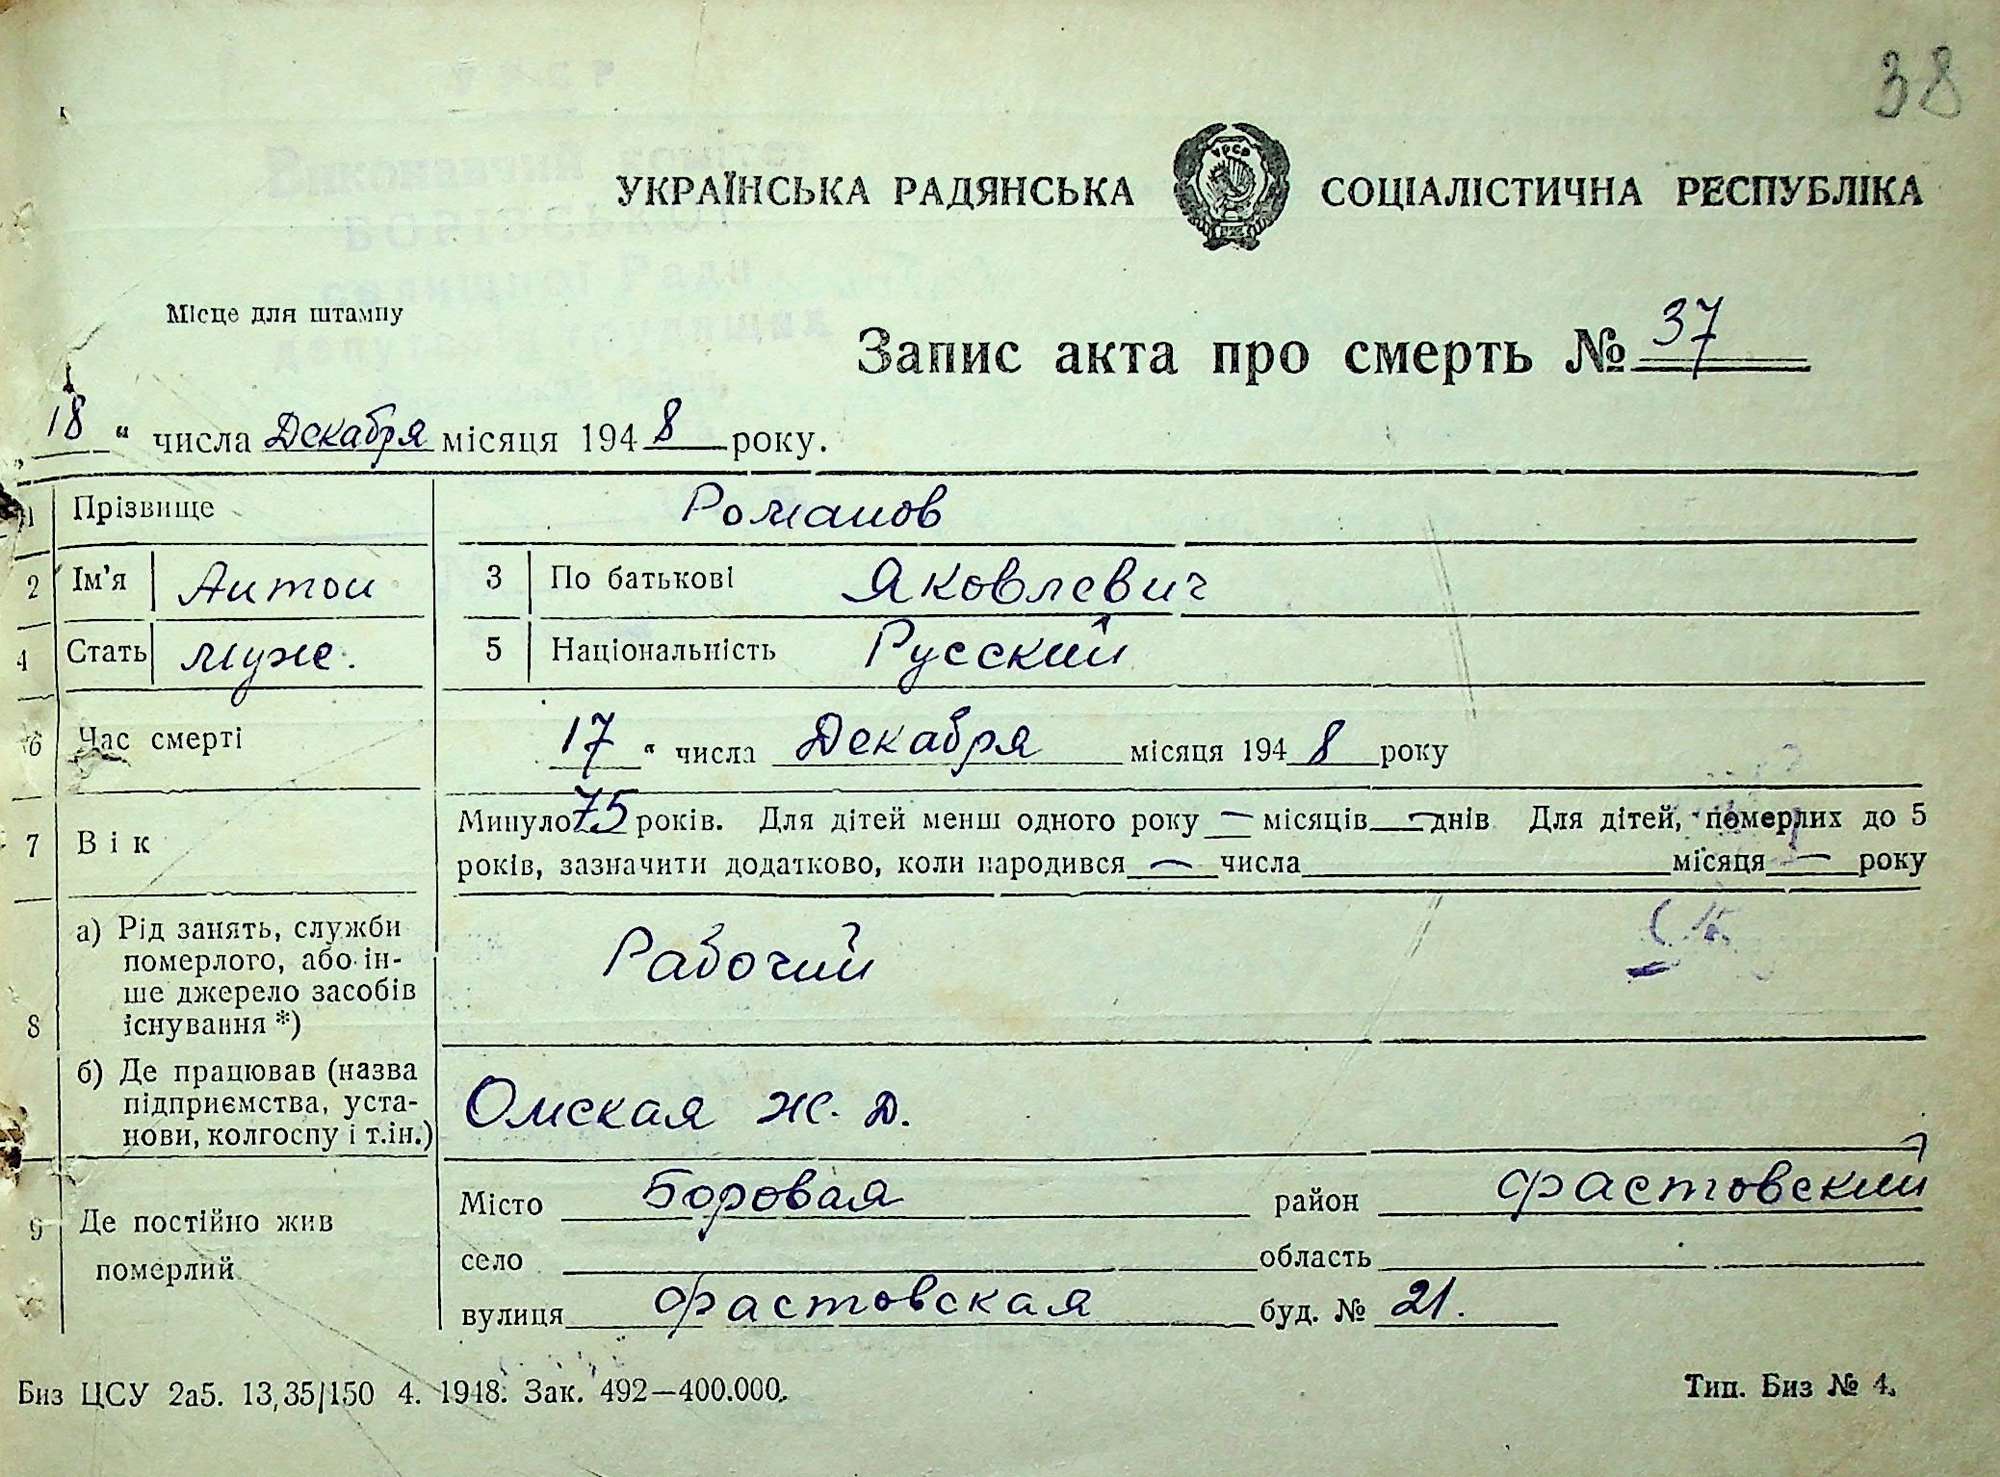 38
УКРАЇНСЬКА РАДЯНСЬКА УРСР СОЦІАЛІСТИЧНА РЕСПУБЛІКА
Місце для штампу
Запис акта про смерть № 37
„18“ числа Декабря місяця 1948 року.
1 Прізвище Романов
2 Ім'я Антон 3 По батькові Яковлевич
4 Стать муж. 5 Національність Русский
6 Час смерті 17 “ числа Декабря місяця 1948 року
7 Вік Минуло 75 років. Для дітей менш одного року — місяців — днів Для дітей, померлих до 5
років, зазначити додатково, коли народився — числа місяця — року
8 а) Рід занять, служби
померлого, або ін-
ше джерело засобів
існування *)
Рабочий
б) Де працював (назва
підприємства, уста-
нови, колгоспу і т.ін.)
Омская ж. д.
9 Де постійно жив
померлий
Місто Боровая район Фастовский
село область
вулиця Фастовская буд. № 21.
Биз ЦСУ 2а5. 13,35/150 4. 1948. Зак. 492—400.000. Тип. Биз № 4.